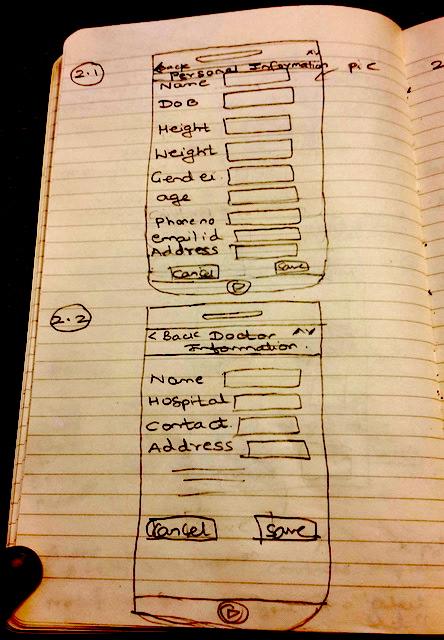 2.1
<Back
Personal Information
pic
2
Name
DOB
Height
Weight
Gender
age
Phone no
email id
Address
Cancel Save
2.2
< Back Doctor
Information.
Name
Hospital
Contact.
Address
Cancel Save